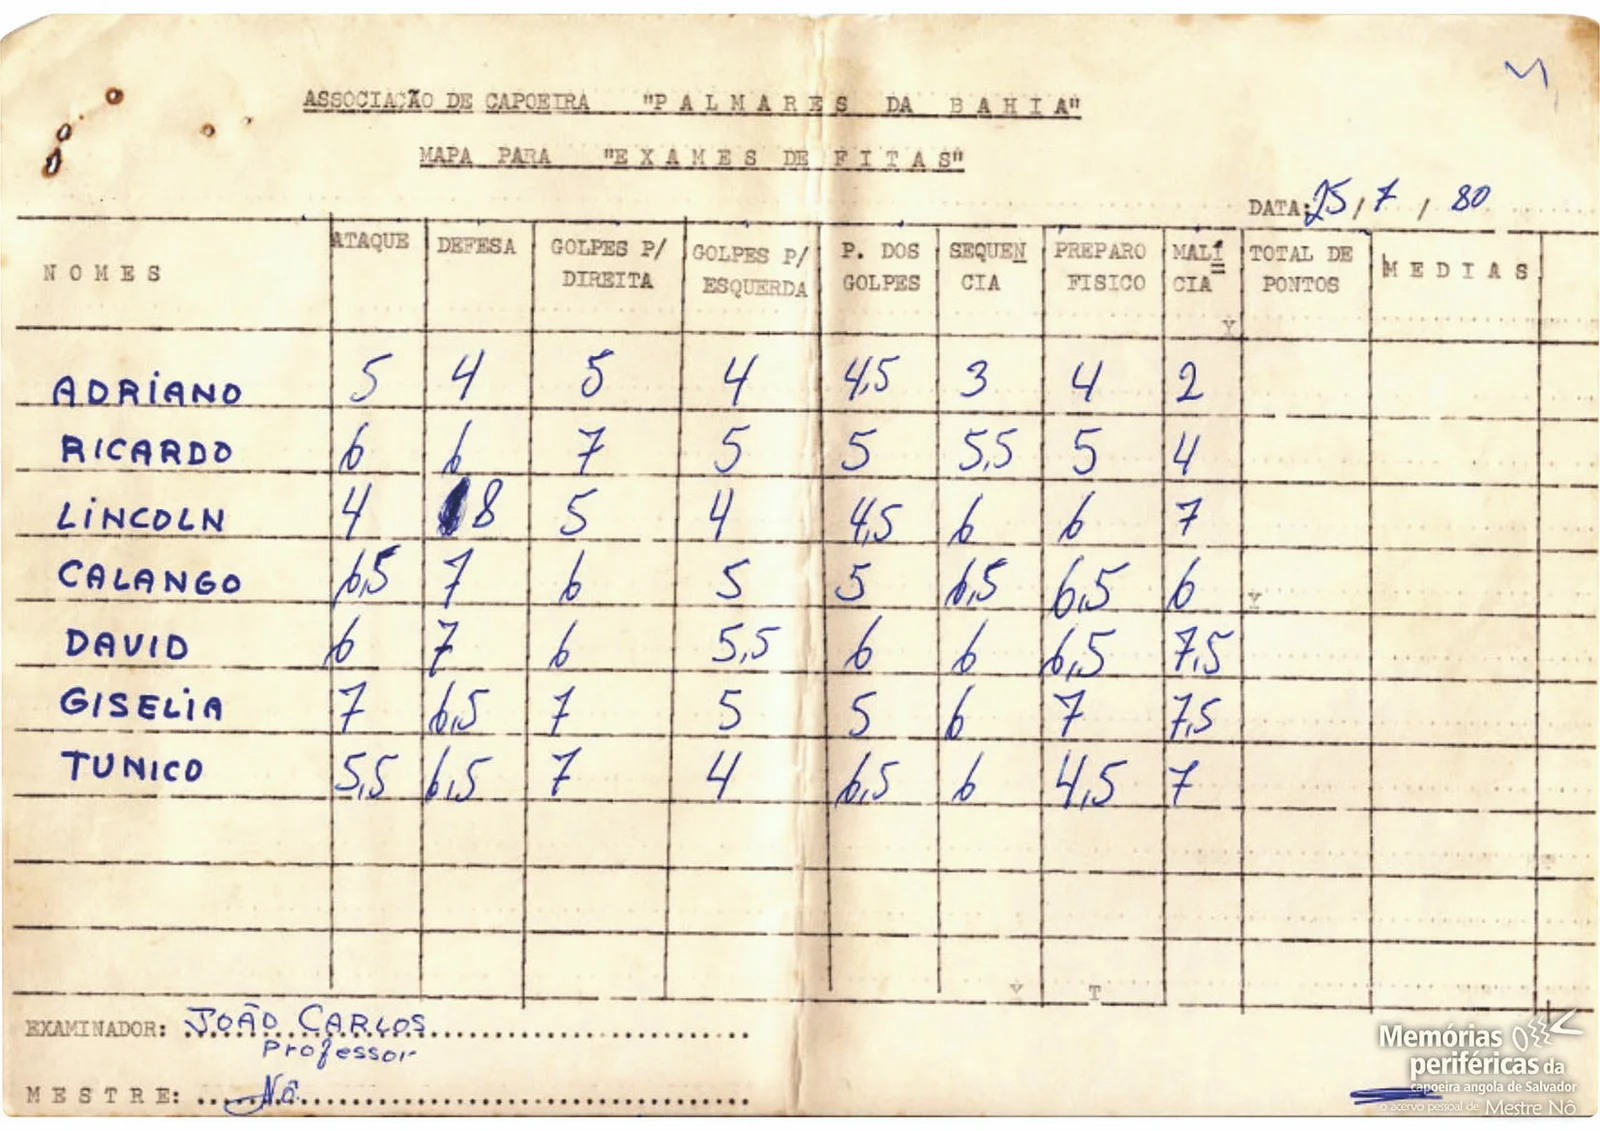 ASSOCIAÇÃO DE CAPOEIRA "PALMARES DA BAHIA"
MAPA PARA "EXAMES DE FITAS"
DATA: 25 / 7 / 80
NOMES ATAQUE DEFESA GOLPES P/ DIREITA GOLPES P/ ESQUERDA P. DOS GOLPES SEQUENCIA PREPARO FISICO MALÍCIA TOTAL DE PONTOS MEDIAS
ADRIANO 5 4 5 4 4,5 3 4 2
RICARDO 6 6 7 5 5 5,5 5 4
LINCOLN 4 8 5 4 4,5 6 6 7
CALANGO 6,5 7 6 5 5 6,5 6,5 6
DAVID 6 7 6 5,5 6 6 6,5 7,5
GISELIA 7 6,5 7 5 5 6 7 7,5
TUNICO 5,5 6,5 7 4 6,5 6 4,5 7
EXAMINADOR: JOÃO CARLOS
Professor
MESTRE: Nô
Memórias
periféricas da
capoeira angola de Salvador
o acervo pessoal de Mestre Nô